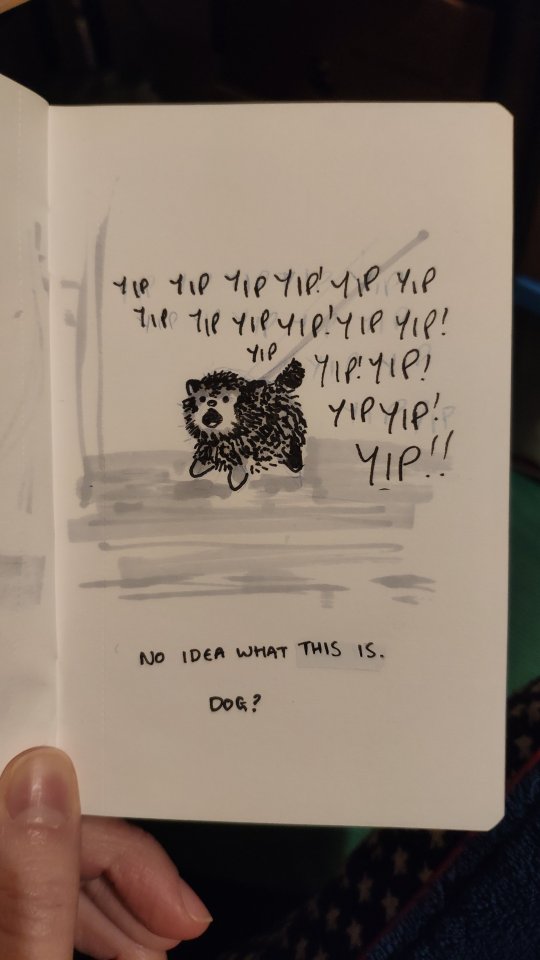 YIP YIP YIP YIP! YIP YIP
YIP YIP YIP YIP! YIP YIP!
YIP YIP! YIP!
YIP YIP!
YIP!!
NO IDEA WHAT THIS IS.
DOG?